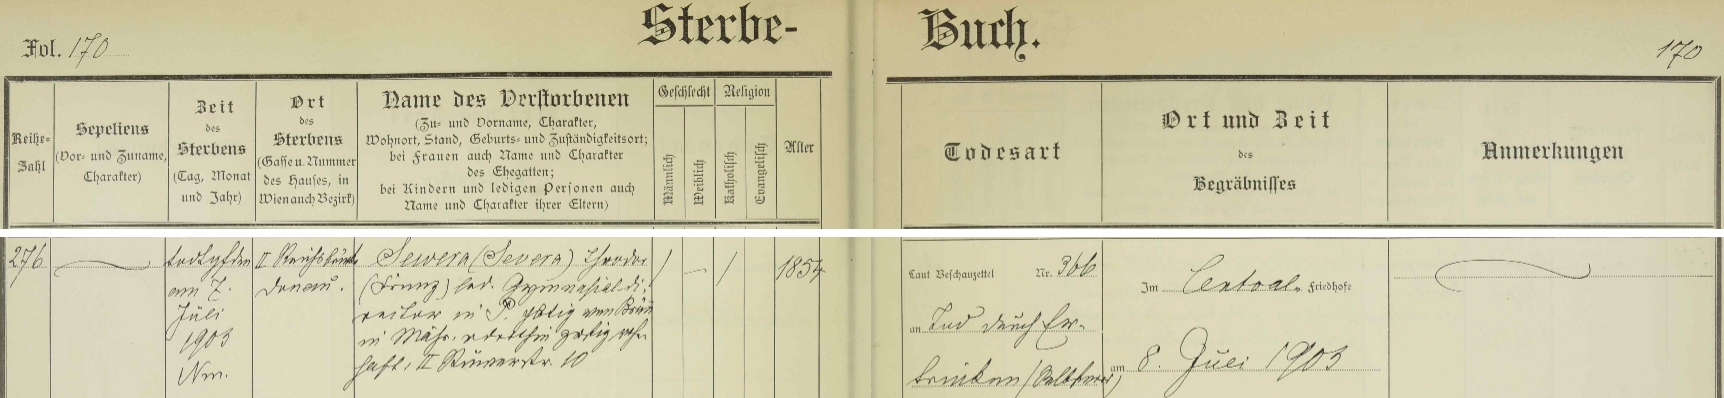 Sterbe-
Fol. 170
Reihe-
Zahl
Sepeliens
(Vor- und Zuname,
Charakter)
Zeit
des
Sterbens
(Tag, Monat
und Jahr)
Ort
des
Sterbens
(Gasse u. Nummer
des Hauses, in
Wien auch Bezirk)
Name des Verstorbenen
(Zu- und Vorname, Charakter,
Wohnort, Stand, Geburts- und Zuständigkeitsort;
bei Frauen auch Name und Charakter
des Ehegatten;
bei Kindern und ledigen Personen auch
Name und Charakter ihrer Eltern)
Geschlecht
Männlich
Weiblich
Religion
Katholisch
Evangelisch
Alter
276
am 7.
Juli
1903
Nm.
II Reichsbrücke
Donau.
Sewera (Severa) Theodor
(Franz) led. Gymnasialdi-
rektor in P.
in Mähr.
II 10
1854
Buch.
170
Todesart
Ort und Zeit
des
Begräbnisses
Anmerkungen
Laut Beschauzettel Nr. 366
an Tod durch Er-
trinken (Selbstmord)
Im Central-Friedhofe
am 8. Juli 1903